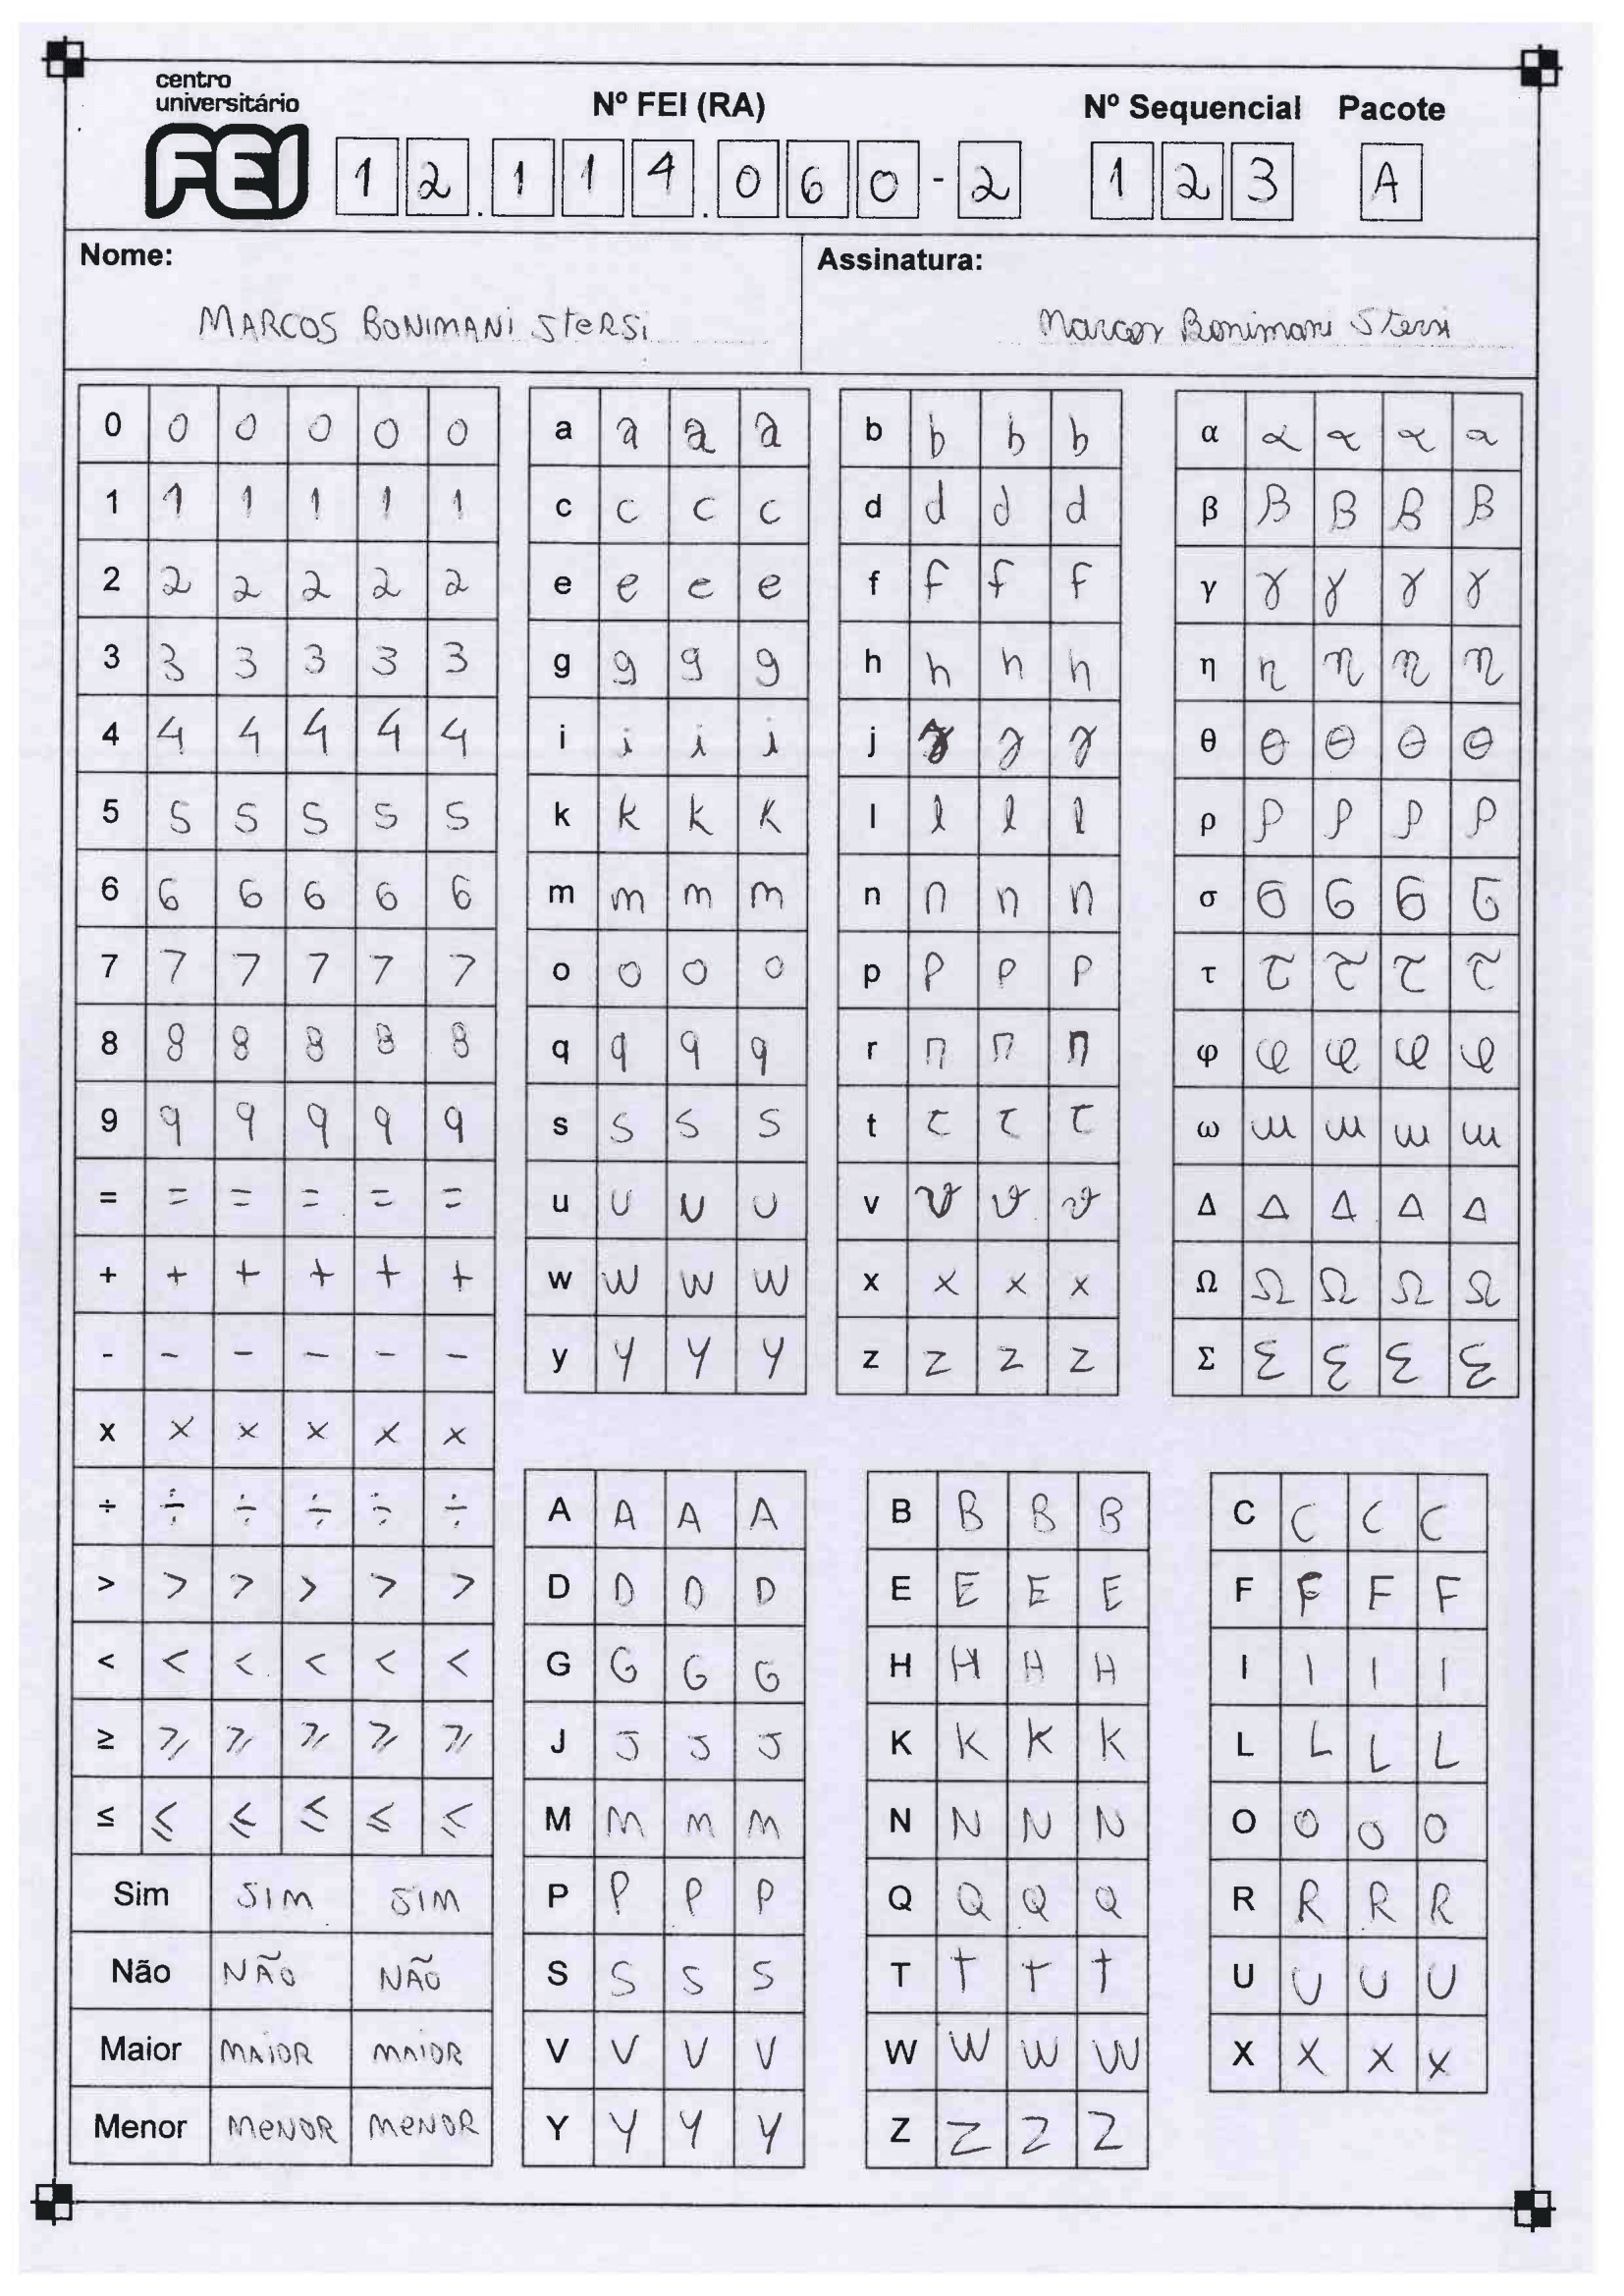 centro
universitário
FEI
Nº FEI (RA)
Nº Sequencial Pacote
12.114.060-2 123 A
Nome:
MARCOS BONIMANI STERSI
Assinatura:
Marcos Bonimani Stersi
0 0 0 0 0 0
1 1 1 1 1 1
2 2 2 2 2 2
3 3 3 3 3 3
4 4 4 4 4 4
5 5 5 5 5 5
6 6 6 6 6 6
7 7 7 7 7 7
8 8 8 8 8 8
9 9 9 9 9 9
= = = = = =
+ + + + + +
- - - - - -
x x x x x x
÷ ÷ ÷ ÷ ÷ ÷
> > > > > >
< < < < < <
≥ ≥ ≥ ≥ ≥ ≥
≤ ≤ ≤ ≤ ≤ ≤
Sim SIM SIM
Não NÃO NÃO
Maior MAIOR MAIOR
Menor MENOR MENOR
a a a a
c c c c
e e e e
g g g g
i i i i
k k k k
m m m m
o o o o
q q q q
s s s s
u u u u
w w w w
y y y y
b b b b
d d d d
f f f f
h h h h
j j j j
l l l l
n n n n
p p p p
r r r r
t t t t
v v v v
x x x x
z z z z
α α α α α
β β β β β
γ γ γ γ γ
η η η η η
θ θ θ θ θ
ρ ρ ρ ρ ρ
σ σ σ σ σ
τ τ τ τ τ
φ φ φ φ φ
ω ω ω ω ω
Δ Δ Δ Δ Δ
Ω Ω Ω Ω Ω
Σ Σ Σ Σ Σ
A A A A
D D D D
G G G G
J J J J
M M M M
P P P P
S S S S
V V V V
Y Y Y Y
B B B B
E E E E
H H H H
K K K K
N N N N
Q Q Q Q
T T T T
W W W W
Z Z Z Z
C C C C
F F F F
I I I I
L L L L
O O O O
R R R R
U U U U
X X X X